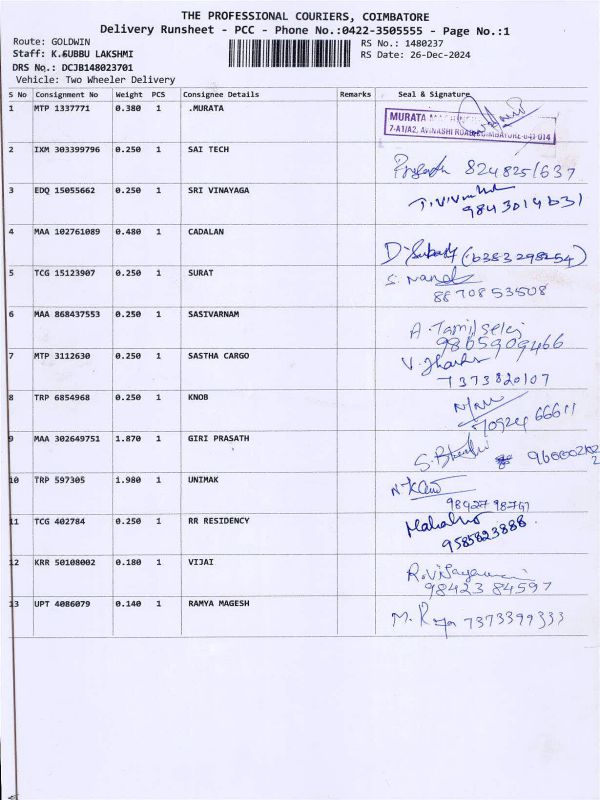 THE PROFESSIONAL COURIERS, COIMBATORE
Delivery Runsheet - PCC - Phone No.:0422-3505555 - Page No.:1
Route: GOLDWIN
RS No.: 1480237
Staff: K.SUBBU LAKSHMI
RS Date: 26-Dec-2024
DRS No.: DCJB148023701
Vehicle: Two Wheeler Delivery
S No Consignment No Weight PCS Consignee Details Remarks Seal & Signature
1 MTP 1337771 0.380 1 .MURATA
MURATA
7-A1/A2, AVINASHI ROAD, COIMBATORE-641 014
2 IXM 303399796 0.250 1 SAI TECH
3 EDQ 15055662 0.250 1 SRI VINAYAGA
9843014631
4 MAA 102761089 0.480 1 CADALAN
(6383298254)
5 TCG 15123907 0.250 1 SURAT
8870853508
6 MAA 868437553 0.250 1 SASIVARNAM
9865909466
7 MTP 3112630 0.250 1 SASTHA CARGO
7373820107
8 TRP 6854968 0.250 1 KNOB
9 MAA 302649751 1.870 1 GIRI PRASATH
10 TRP 597305 1.980 1 UNIMAK
11 TCG 402784 0.250 1 RR RESIDENCY
9585823888
12 KRR 50108002 0.180 1 VIJAI
9842384597
13 UPT 4086079 0.140 1 RAMYA MAGESH
7373399333